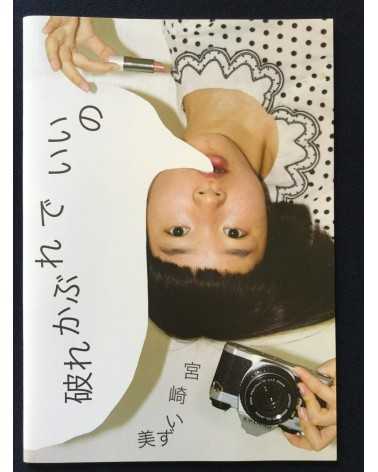 破れかぶれでいいの
宮崎いず美